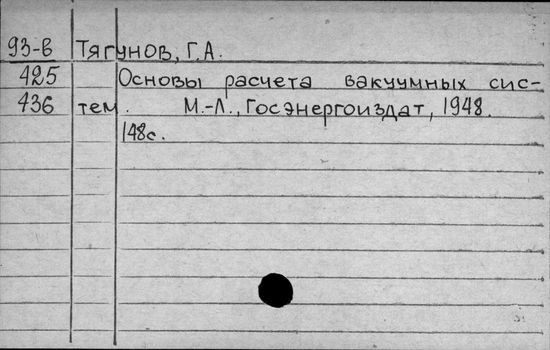 93-в Тягунов, Г.А.
425 Основы расчета вакуумных сис-
436 тем. М.-Л., Госэнергоиздат, 1948.
148с.